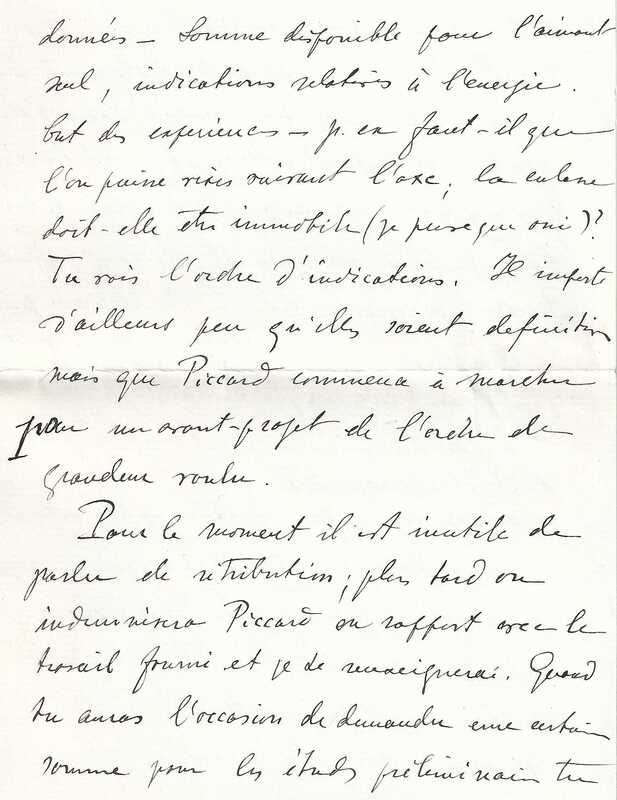 données – Somme disponible pour l'aimant
seul, indications relatives à l'énergie.
but des expériences – p. ex faut-il que
l'on puisse viser suivant l'axe, la culasse
doit-elle être immobile (je pense que oui)?
Tu vois l'ordre d'indications. Il importe
d'ailleurs peu qu'elles soient definitives
mais que Piccard commence à marcher
pour un avant-projet de l'ordre de
grandeur voulu.
Pour le moment il est inutile de
parler de rétribution; plus tard on
indemnisera Piccard en rapport avec le
travail fourni et je te renseignerai. Quand
tu auras l'occasion de demander une certaine
somme pour les études préliminaires tu